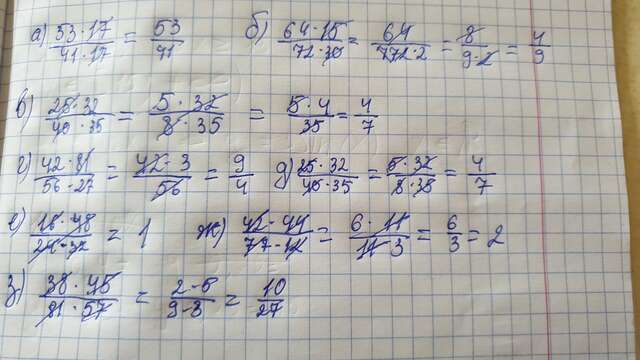 а) 53·17/41·17 = 53/41
б) 64·15/72·30 = 64/72·2 = 8/9·2 = 4/9
в) 25·32/40·35 = 5·32/8·35 = 5·4/35 = 4/7
г) 42·81/56·27 = 42·3/56 = 9/4
д) 25·32/40·35 = 5·32/8·35 = 4/7
= 1
ж) = 6·11/11·3 = 6/3 = 2
з) 38·45/81·57 = 2·5/9·3 = 10/27